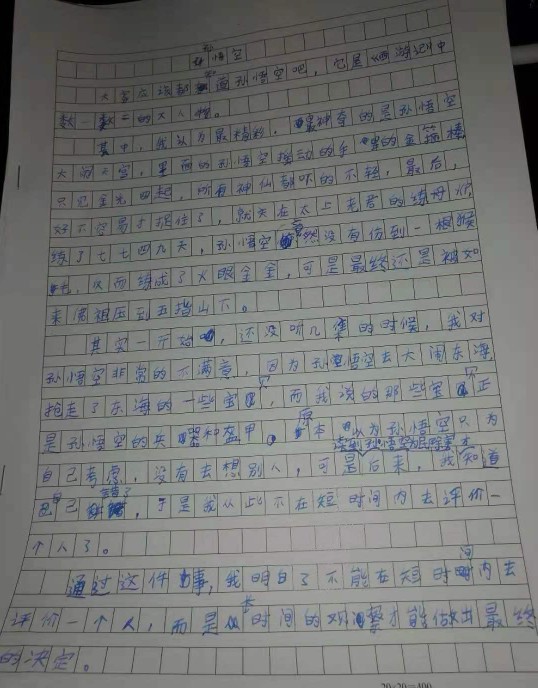 孙悟空
大家应该都知道孙悟空吧，它是《西游记》中
数一数二的大人物。
其中，我认为最精彩，最神奇的是孙悟空
大闹天宫，里面的孙悟空挥动的手里的金箍棒
只见金光四起，所有神仙都吓的不轻，最后，
好不容易才捉住了，就关在太上老君的炼丹炉
炼了七七四九天，孙悟空竟然没有伤到一根猴
毛，从而练成了火眼金金，可是最终还是被如
来佛祖压到五指山下。
其实一开始，还没听几集的时候，我对
孙悟空非常的不满意，因为孙悟空去大闹东海，
抢走了东海的一些宝贝，而我说的那些宝贝正
是孙悟空的武器和盔甲。原本以为孙悟空只为
自己考虑，没有去想别人，可是后来，我知道
自己错了，于是我从此不在短时间内去评价一
个人了。
通过这件事，我明白了不能在短时间内去
评价一个人，而是长时间的观察才能做出最终
的决定。
20×20=400